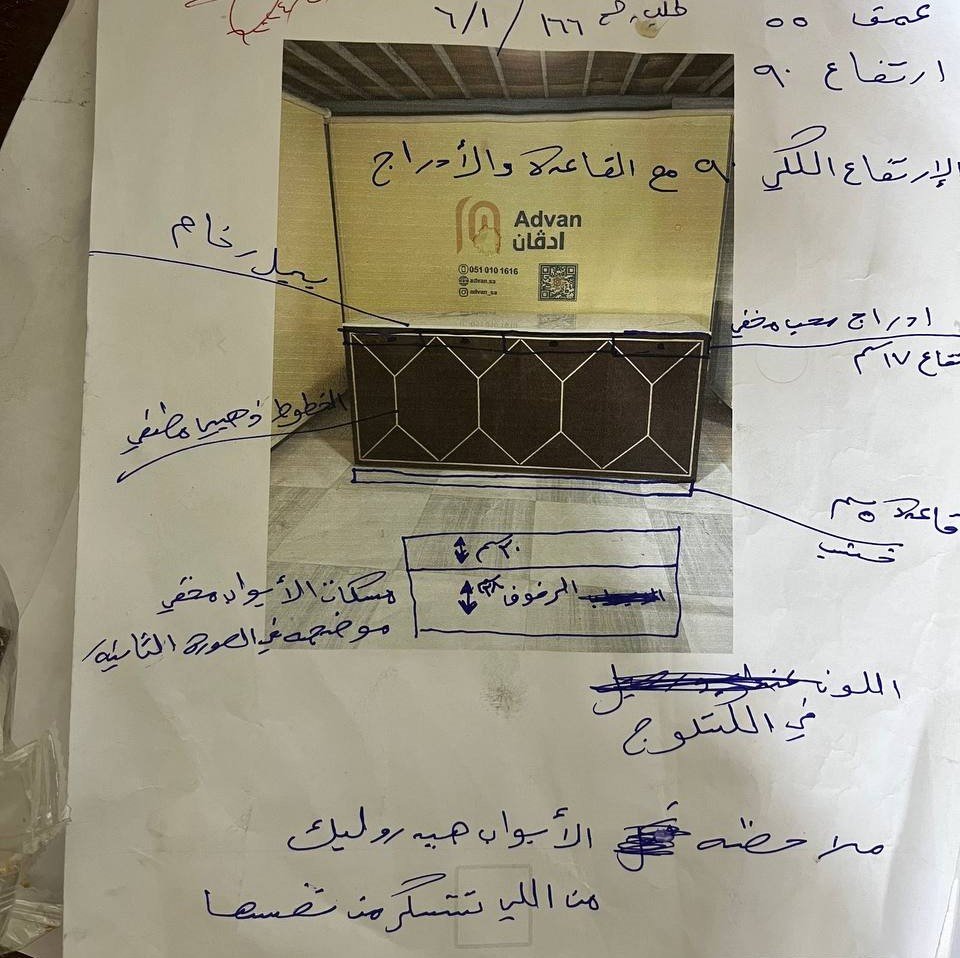 طلب رقم ١٦٦
٦/١
عمق ٥٥
ارتفاع ٩٠
الإرتفاع الكلي ٩٠ مع القاعدة والأدراج
Advan
ادڤان
051 010 1616
advan.sa
advan_sa
رخام
ادراج سحب مخفي
ـفاع ١٧ سم
الخطوط ذهبي مطفي
قاعدة ٥ سم
خشب
٣٠ سم
الرفوف
مسكات الأبواب مخفي
موضحه في الصورة الثانيه
اللون
في الكتلوج
ملاحظه الأبواب هيدروليك
من اللي تتسكر من نفسها